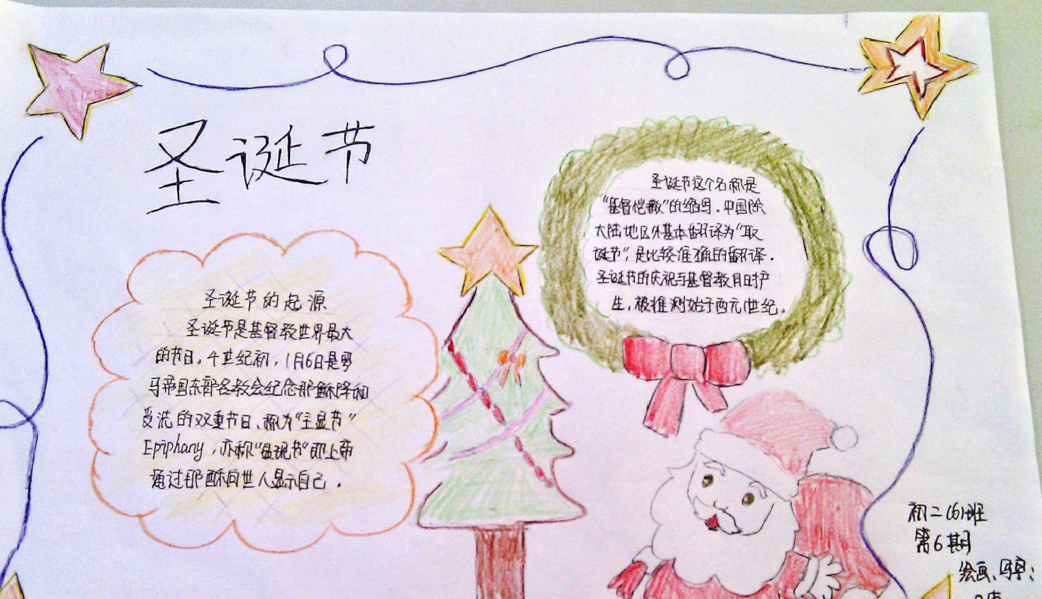 圣诞节
圣诞节的起源
圣诞节是基督教世界最大
的节日。4世纪初，1月6日是罗
马帝国东部各教会纪念耶稣降和
受洗的双重节日、称为"主显节"
Epiphany，亦称"显现节"即上帝
通过耶稣向世人显示自己。
圣诞节这个名称是
"基督弥撒"的缩写．中国除
大陆地区外基本翻译为"耶
诞节"，是比较准确的翻译．
圣诞节的庆祝与基督教同时产
生，被推测始于西元1世纪．
初二(6)班
第6期
绘画、写字：